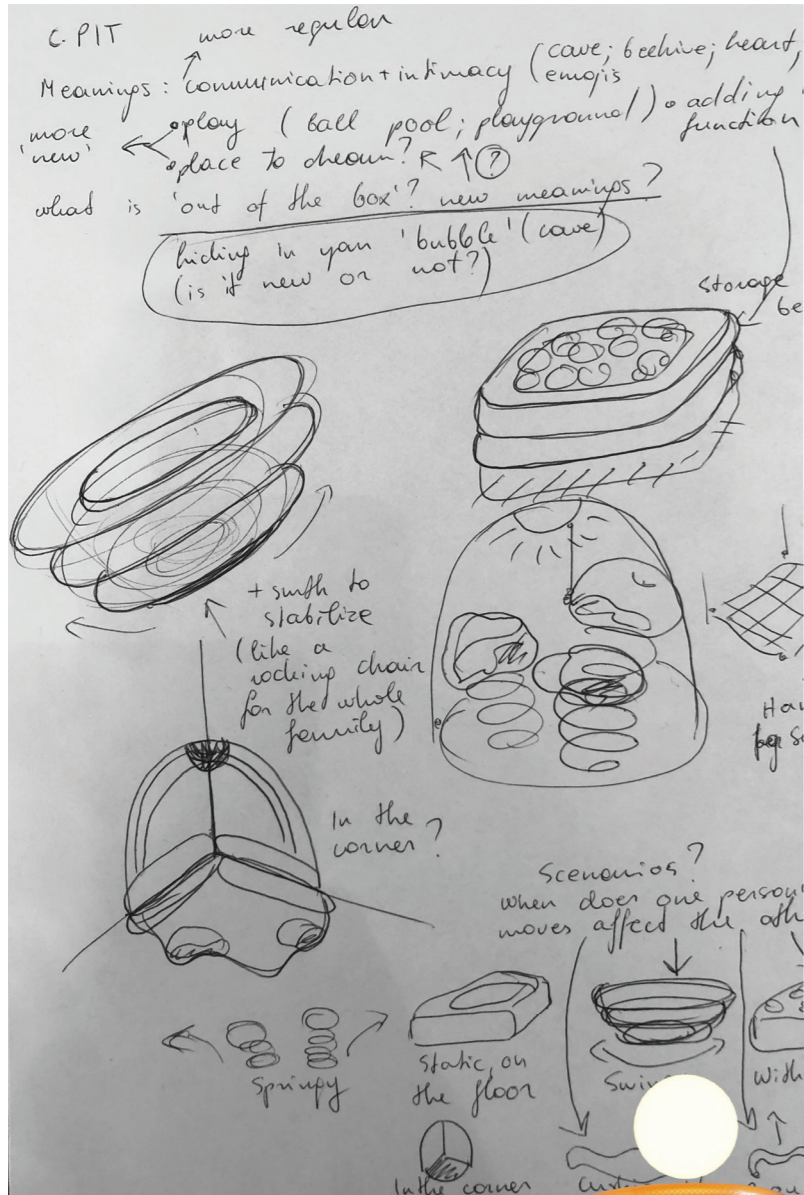 C. PIT
more regular
Meanings: communication + intimacy (cave; beehive; heart,
emojis
'more
new'
play (ball pool; playground)
adding
function
place to dream? (?)
what is 'out of the box'? new meanings?
hiding in your 'bubble' (cave)
(is it new or not?)
Storage
be
+ smth to
stabilize
(like a
rocking chair
for the whole
family)
Ha
In the
corner?
Scenarios?
when does one person
moves affect the oth
Springy
Static, on
the floor
Swin
With
In the corner
Cush